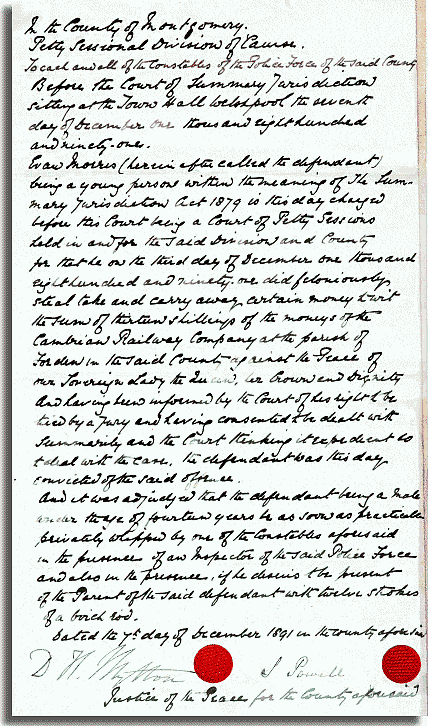 In the County of Montgomery.
Petty Sessional Division of Cawrse.
To each and all of the Constables of the Police Force of the said County
Before the Court of Summary Jurisdiction
sitting at the Town Hall Welshpool the seventh
day of December one thousand eight hundred
and ninety-one.
Evan Morris (herein after called the defendant)
being a young person within the meaning of The Sum-
mary Jurisdiction Act 1879 is this day charged
before this Court being a Court of Petty Sessions
held in and for the said Division and County
for that he on the third day of December one thousand
eight hundred and ninety-one did feloniously
steal take and carry away certain money to wit
the sum of thirteen shillings of the moneys of the
Cambrian Railway Company at the parish of
Forden in the said County against the Peace of
our Sovereign Lady the Queen, her Crown and Dignity
And having been informed by the Court of his right to be
tried by a Jury and having consented to be dealt with
Summarily and the Court thinking it expedient so
to deal with the case, the defendant was this day
convicted of the said offence.
And it was adjudged that the defendant being a male
under the age of fourteen years be as soon as practicable
privately whipped by one of the Constables aforesaid
in the presence of an Inspector of the said Police Force
and also in the presence, if he desires to be present
of the Parent of the said defendant with twelve strokes
of a birch rod.
Dated the 7th day of December 1891 in the County aforesaid
D. H. Mytton J Powell
Justice of the Peace for the County aforesaid